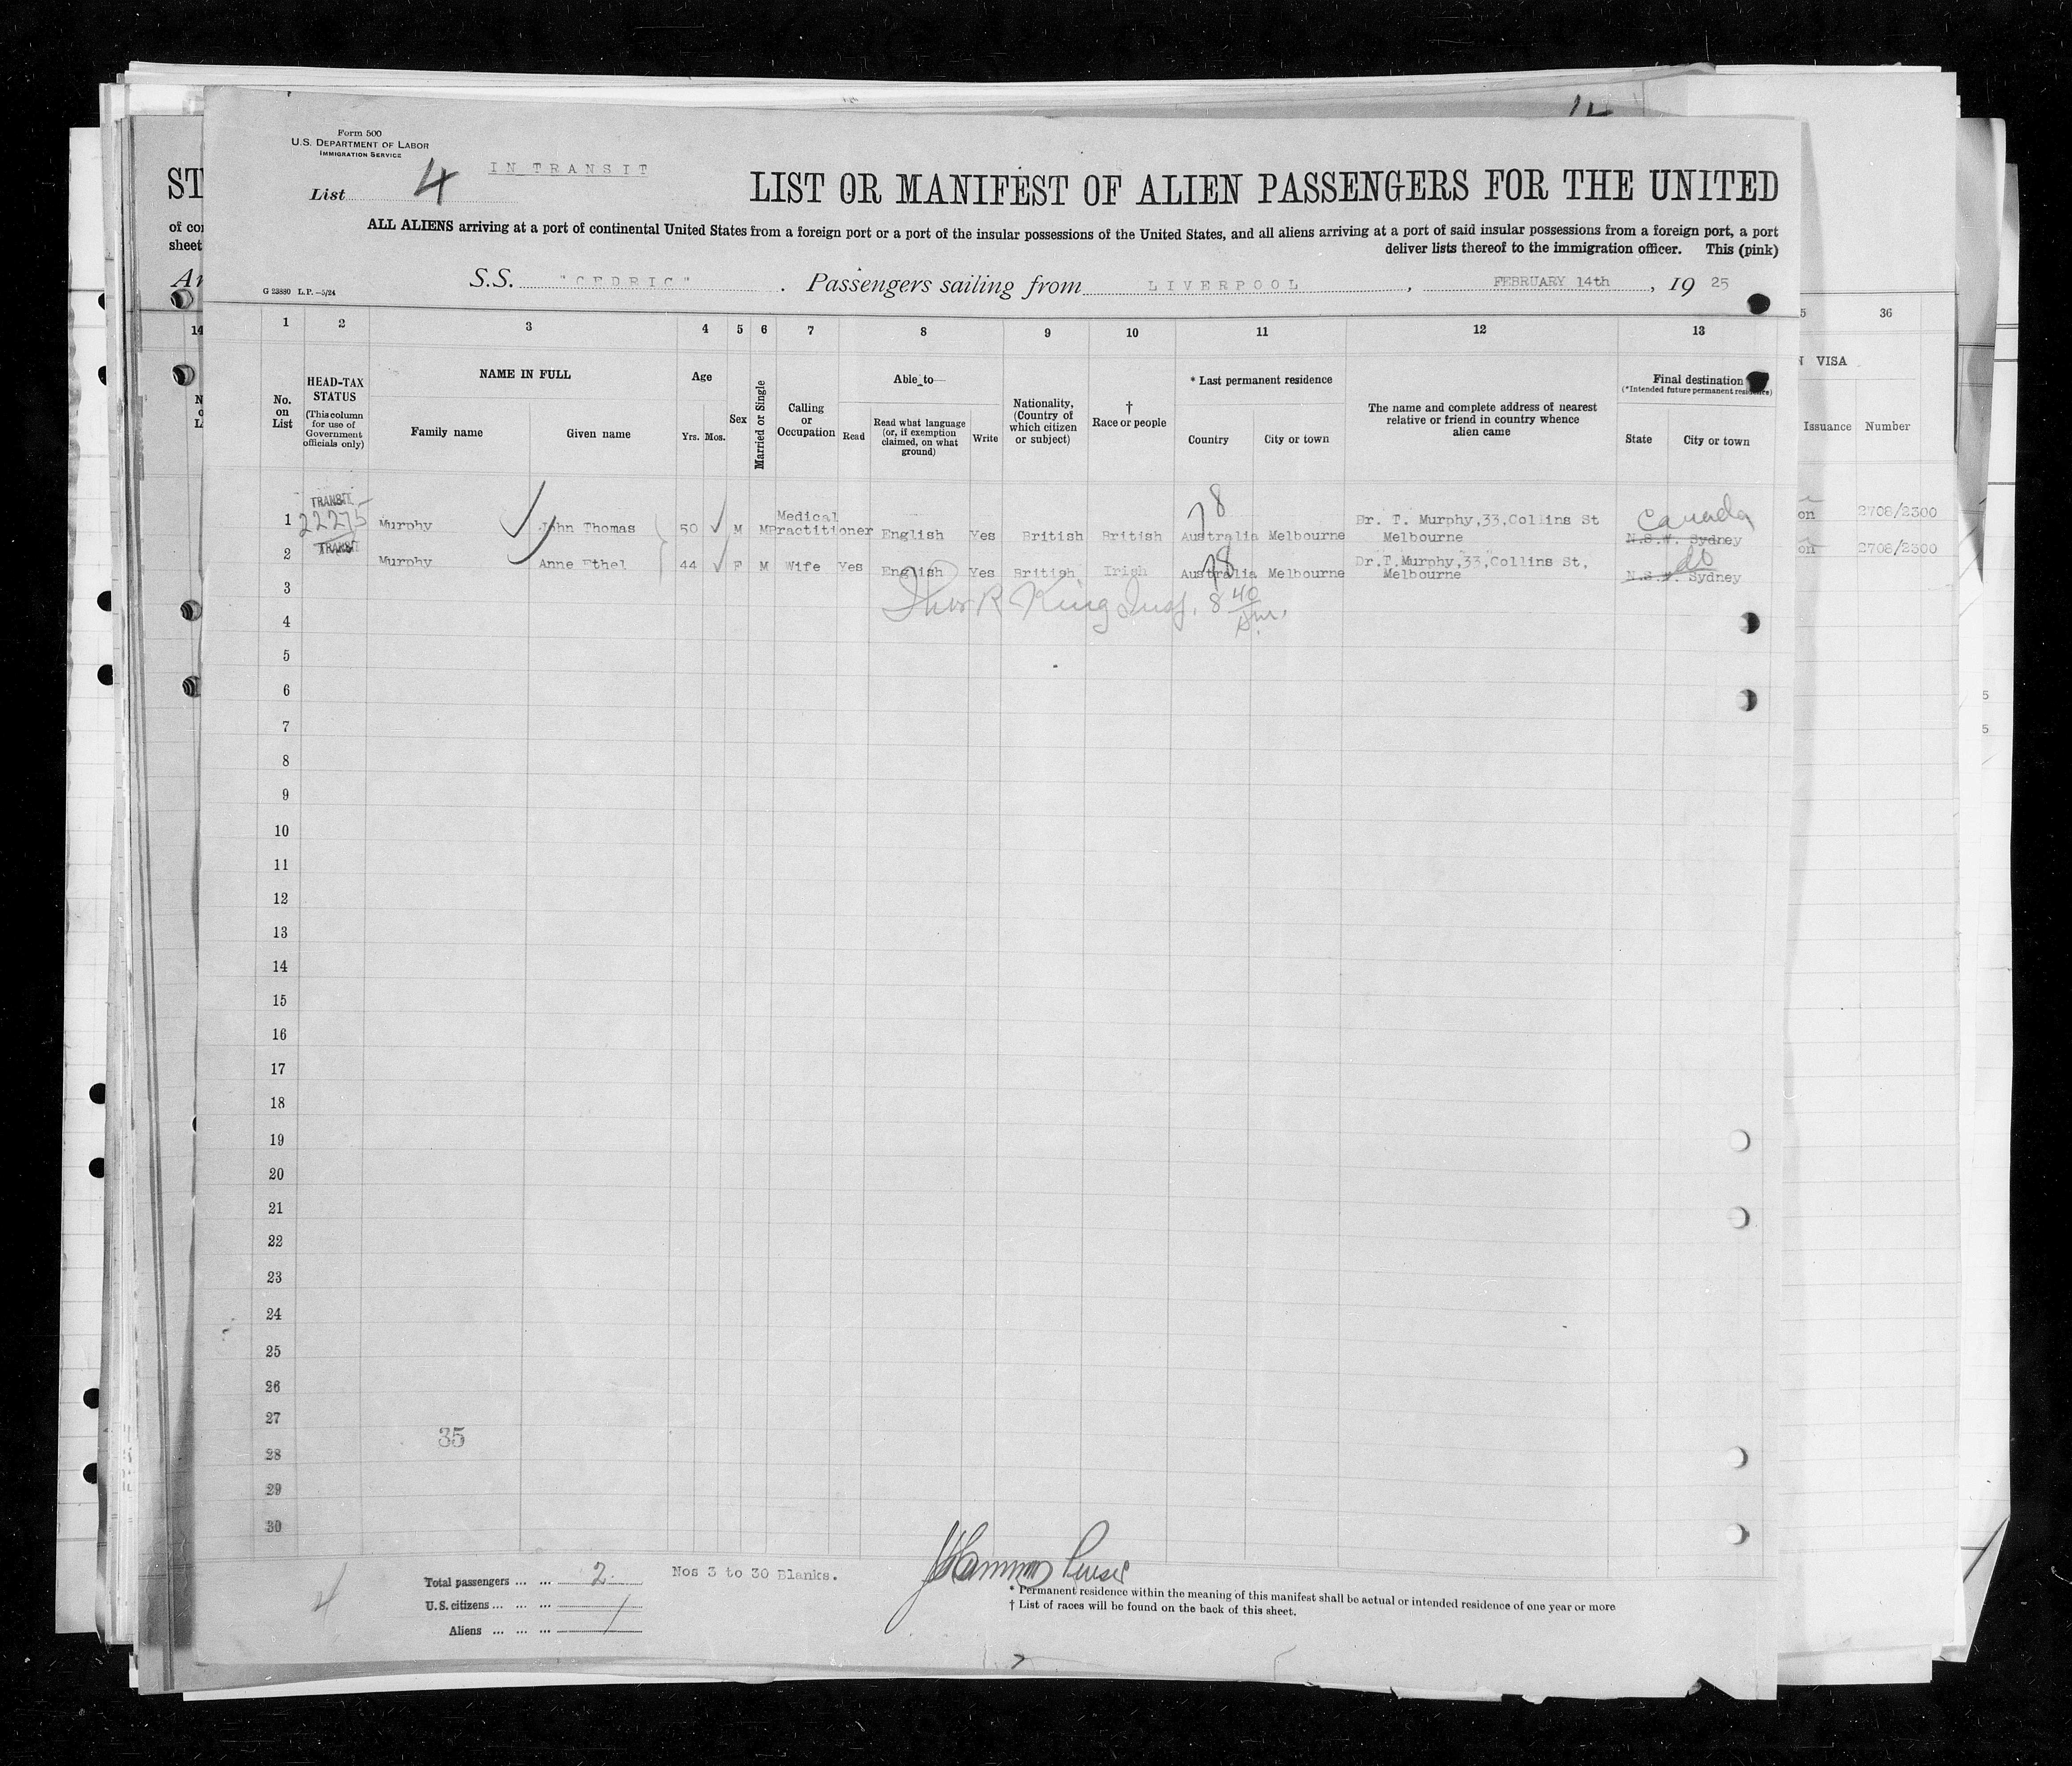 Form 500
U.S. DEPARTMENT OF LABOR
IMMIGRATION SERVICE
IN TRANSIT
List 4
LIST OR MANIFEST OF ALIEN PASSENGERS FOR THE UNITED
ALL ALIENS arriving at a port of continental United States from a foreign port or a port of the insular possessions of the United States, and all aliens arriving at a port of said insular possessions from a foreign port, a port
deliver lists thereof to the immigration officer. This (pink)
G 23880 L.P.—5/24
S.S. "CEDRIC" . Passengers sailing from LIVERPOOL, FEBRUARY 14th, 19 25
1 2 3 4 5 6 7 8 9 10 11 12 13
36
No. on List
HEAD-TAX STATUS
(This column for use of Government officials only)
NAME IN FULL
Family name
Given name
Age
Yrs. Mos.
Sex
Married or Single
Calling or Occupation
Able to
Read
Read what language (or, if exemption claimed, on what ground)
Write
Nationality, (Country of which citizen or subject)
† Race or people
* Last permanent residence
Country
City or town
The name and complete address of nearest relative or friend in country whence alien came
Final destination
(*Intended future permanent residence)
State
City or town
VISA
Issuance Number
TRANSIT
1 22275 Murphy John Thomas 50 M M Medical Practitioner English Yes British British 78 Australia Melbourne Dr. T. Murphy,33,Collins St Melbourne Canada N.S.W. Sydney on 2708/2300
TRANSIT
2 Murphy Anne Ethel 44 F M Wife Yes English Yes British Irish 78 Australia Melbourne Dr.T.Murphy,33,Collins St, Melbourne do N.S.W. Sydney on 2708/2300
3
4
5
6
7
8
9
10
11
12
13
14
15
16
17
18
19
20
21
22
23
24
25
26
27
35
28
29
30
Total passengers ... ... 2
Nos 3 to 30 Blanks.
Purser
U.S. citizens ... ... ...
Aliens ... ... ...
4
* Permanent residence within the meaning of this manifest shall be actual or intended residence of one year or more
† List of races will be found on the back of this sheet.